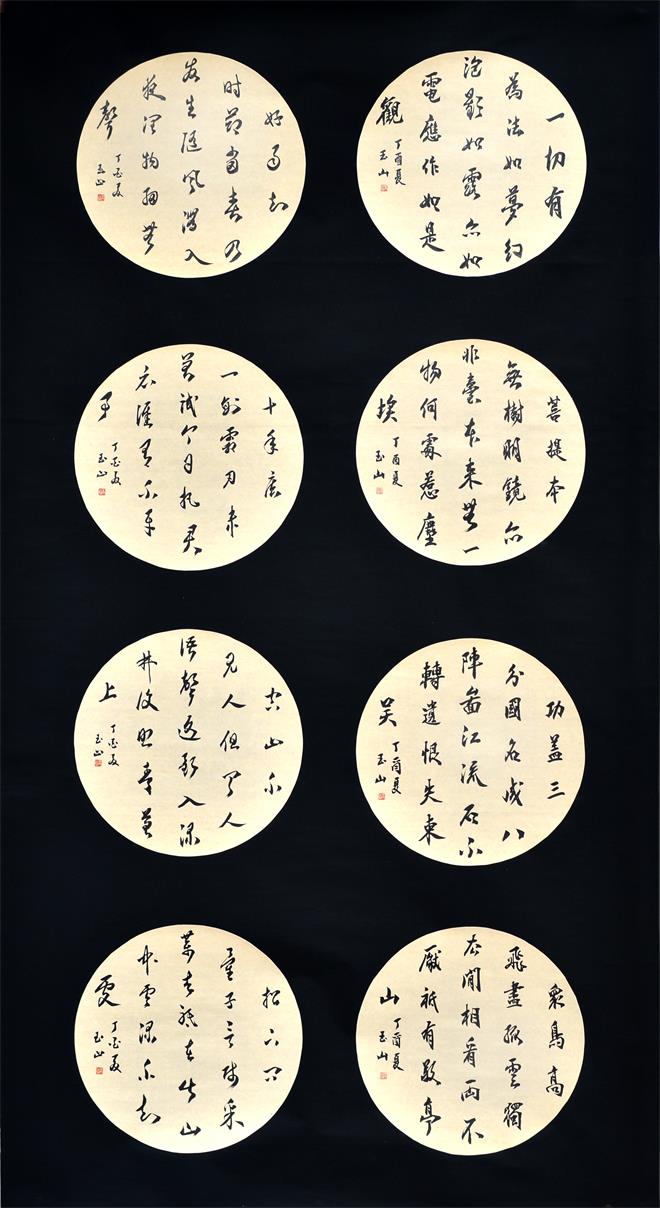 一切有
為法如夢幻
泡影如露亦如
電應作如是
觀
丁酉夏
玉山
菩提本
無樹明鏡亦
非臺本來無一
物何處惹塵
埃
丁酉夏
玉山
功蓋三
分國名成八
陣圖江流石不
轉遺恨失東
吴
丁酉夏
玉山
衆鳥高
飛盡孤雲獨
去閒相看兩不
厭祗有敬亭
山
丁酉夏
玉山
好雨知
时節當春乃
發生隨風潛入
夜潤物細無
聲
丁酉夏
玉山
十年磨
一劍霜刃未
曾試今日把君
示誰有不平
事
丁酉夏
玉山
空山不
見人但聞人
語聲返影入深
林復照青苔
上
丁酉夏
玉山
松下問
童子言師采
藥去祗在此山
中雲深不知
處
丁酉夏
玉山